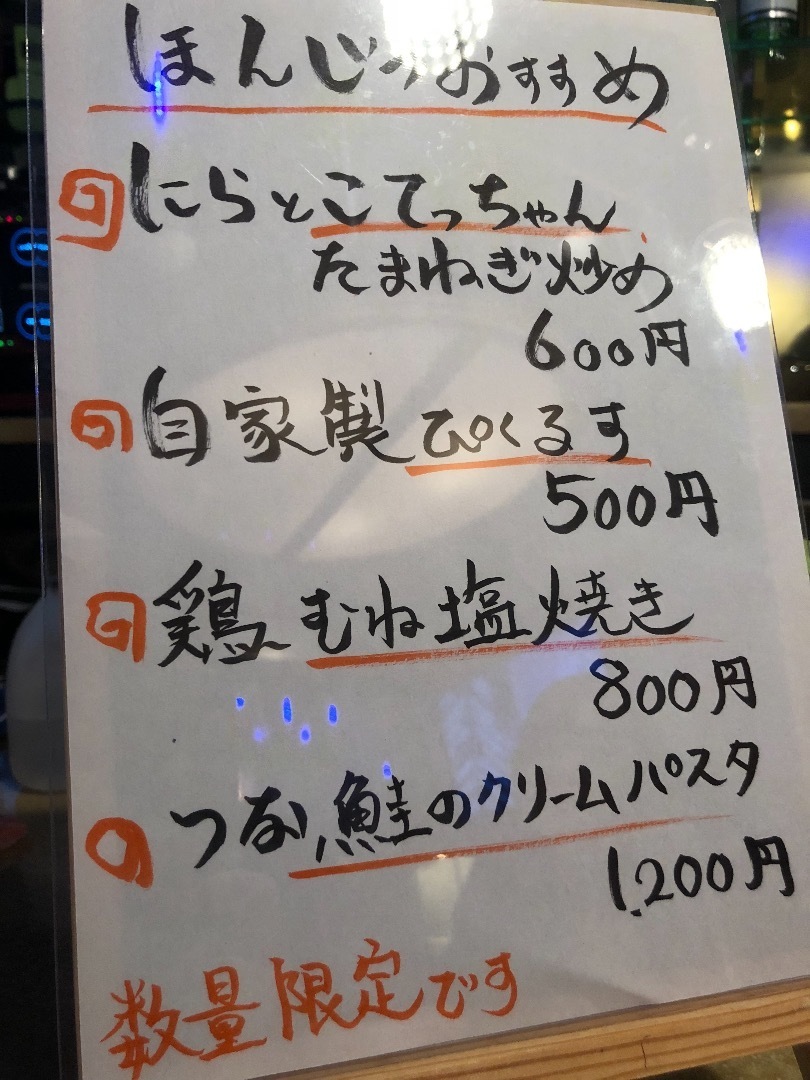 ほんじつおすすめ
にらとこてっちゃん
たまねぎ炒め
600円
自家製ぴくるす
500円
鶏むね塩焼き
800円
つな鮭のクリームパスタ
1,200円
数量限定です